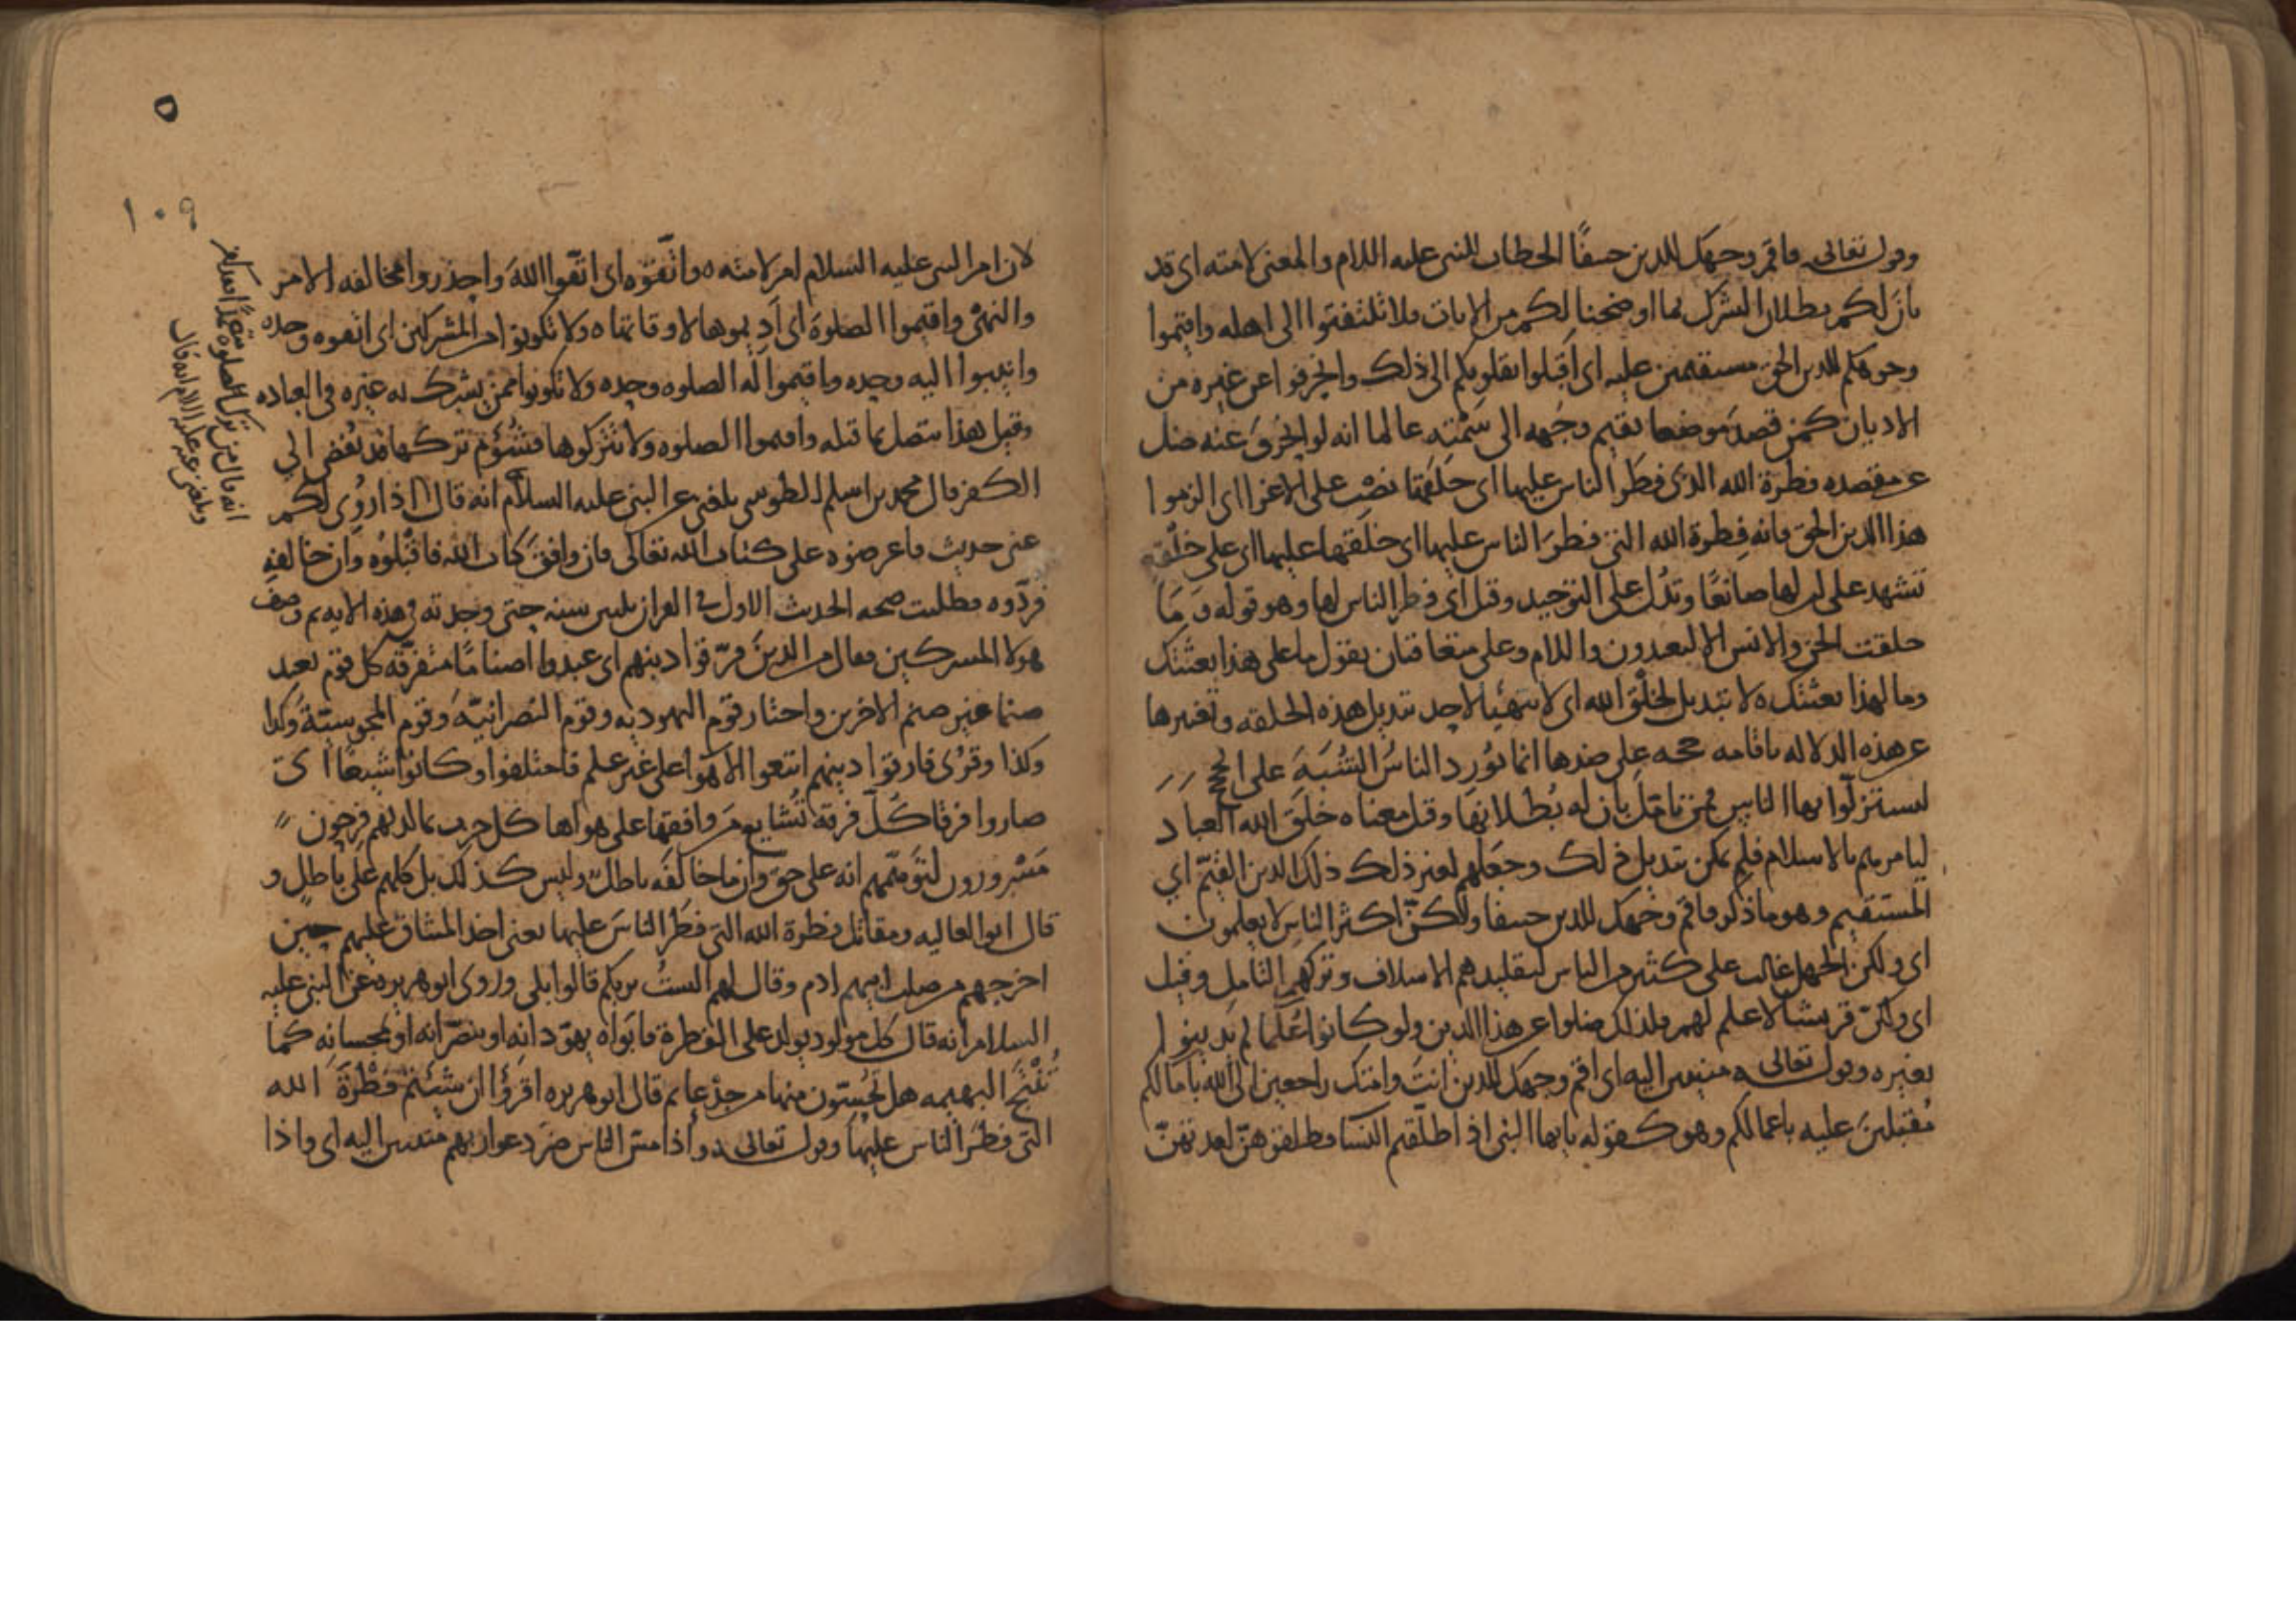 وقوله تعالى فاقم وجهك للدين حنيفًا الخطاب للنبي عليه السلام والمعنى لامته اى قد
بان لكم بطلان الشرك بما اوضحنا لكم من الايات فلا تلتفتوا الى اهله واقيموا
وجوهكم للدين الحق مستقيمين عليه اى اَقبلوا بقلوبكم الى ذلك وانحرفوا عن غيره من
الاديان كمن قصد موضعا يقيم وجهه الى سَمْتِهِ عالما انه لو انحرف عنه ضل
عن مقصده فطرة الله الذى فطر الناس عليها اى خلقتها نصْب على الاغرا اى الزموا
هذا الدين الحق فانه فِطرة الله التى فطرَ الناس عليها اى خلقَها عليها اى على خلْقةٍ
تشهد على ان لها صانعًا وتدُل على التوحيد وقيل اى فطر الناس لها وهو قوله وَمَا
خلقت الجن والانس الا ليعبدون واللام وعلى يتعاقبان يقول ما على هذا بعثتك
وما لهذا بعثتك ه لا تبديل لخلْق الله اى لا يتهيّا لاحد تبديل هذه الخلقه وتغيرها
عن هذه الدلاله باقامه حجه على ضدها انما يُورِد الناسُ الشُبَهَ على الحجج
ليستزلّوا بها الناس فمن تامّل بان له بُطلانها وقيل معناه خلَقَ الله العباد
ليامرهم بالاسلام فلم يمكن تبديل ذلك وجعلهم لغير ذلك ذلك الدين القيّم اي
المستقيم وهو ما ذكر فاقم وجهك للدين حنيفا ولكنّ اكثر الناسِ لا يعلمون
اى ولكن الجهل غالب على كثير من الناس لتقليدهم الاسلاف وتركهم التامل وقيل
اى ولكنّ قريشا لا علم لهم فلذلك ضلوا عن هذا الدين ولو كانوا عُلَمَا لم يَدينوا
بغيره وقوله تعالى ه منيبين اليه اى اقم وجهك للدين انتَ وامتك راجعين الى الله بامالكم
مُقبلينَ عليه باعمالكم وهو كقوله يايها النبى اذا طلّقتم النسا فطلقوهنّ لعدتهنّ
لان امر النبى عليه السلام امر لامته ه واتّقوْه اى اتّقوا اللهَ واحذروا مخالفه الامر
والنهىْ واقيموا الصلوةَ اى اَدِيموها لاوقاتها ه ولا تكونوا من المشركين اى اتقوه وحده
وانيبوا اليه وحده واقيموا له الصلوه وحده ولا تكونوا ممن يشرك به غيره فى العباده
وقيل هذا متصل بما قبله واقيموا الصلوه ولا تتركوها فشُؤم تركها قد يُفضى الي
الكفر قال محمد بن اسلم الطوسى بلغنى عن النبى عليه السلام انه قال اذا رُوى لكم
عنى حديث فاعرضوه على كتاب الله تعالى فان وافق كتاب الله فاقبلوُه وان خالفهِ
فردّوه فطلبت صحه الحديث الاول فى القران ثلثين سنه حتى وجدته فى هذه الايه ثم وصف
هولا المشركين فقال من الذينَ فرّقوا دينهم اى عبدوا اصنامًا متفرّقه كل قوم تعبد
صنما غير صنم الاخرين واختار قوم اليهوديه وقوم النصرانيّه وقوم المجوسيّة وكذا
وكذا وقُرى فارقوا دينهم اتبعوا الاهوَا على غير علم فاختلفوا وكانوا شيعًا اىْ
صاروا فرقا كُلّ فرقة تُشايع مَن وافقها على هواها كل حزب بما لديهم فرحون
مَسْرورون لتوَهُّمهم انه على حق وان ما خالفَه باطل وليس كذلك بل كلهم على باطلٍ و
قال ابو العاليه ومقاتل فطرة الله التى فطَر الناسَ عليها يعنى اخذ الميثاق عليهم حين
اخرجهم من صلب ابيهم ادم وقال لهم الستُ بربكم قالوا بلى وروى ابو هريره عن النبى عليه
السلام انه قال كل مولود يولد على الفطرة فابَواه يهوّدانِه او ينصّرانه او يمجسانه كما
تُنْتَج البهيمه هل تُحِسّون منها من جدْعا ثم قال ابو هريره اقرؤا ان شئتم فطْرةَ الله
التى فطَر الناس عليها وقوله تعالى ه واذا مسّ الناس ضر دعوا ربهم منيبين اليه اى واذا
وبلغنى عنه عليه السلام انه قال
انه قال من ترك الصلوه متعمدًا فقد كفر
١٠٩